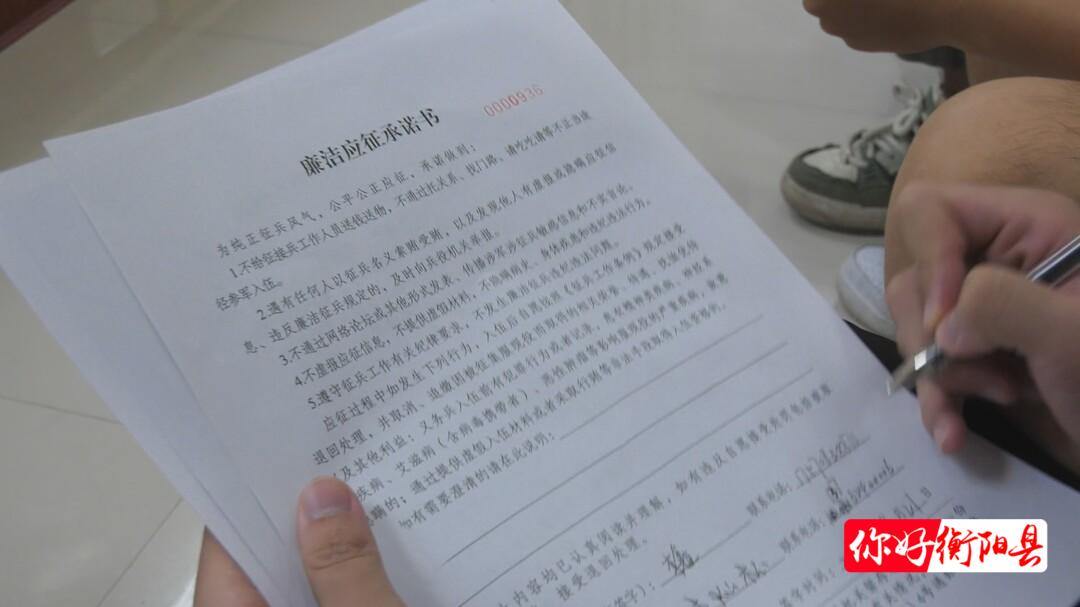 0000936
廉洁应征承诺书
为纯正征兵风气，公平公正应征，承诺做到：
1.不给征接兵工作人员送钱送物，不通过托关系、找门路、请吃吃请等不正当途
径参军入伍。
2.遇有任何人以征兵名义索贿受贿，以及发现他人有虚报或隐瞒应征信
息、违反廉洁征兵规定的，及时向兵役机关举报。
3.不通过网络论坛或其他形式发表、传播涉军涉征兵敏感信息和不实言论。
4.不虚报应征信息，不提供虚假材料，不隐瞒病史、身体疾患和违纪违法行为。
5.遵守征兵工作有关纪律要求，不发生廉洁征兵违纪违法问题。
应征过程中如发生下列行为，入伍后自愿按照《征兵工作条例》规定接受
退回处理，并取消、追缴因被征集服现役而取得的相关荣誉、待遇、抚恤优待
及其他利益：义务兵入伍前有犯罪行为或者记录，患有精神类疾病、神经系
疾病、艾滋病（含病毒携带者）、恶性肿瘤等影响服现役的严重疾病，被离
瞒的；通过提供虚假入伍材料或者采取行贿等非法手段取得入伍资格的。
如有需要澄清的请在此说明：
内容均已认真阅读并理解，如有违反自愿接受
接受退回处理。
签字）：
联系电话：
联系电话：
你好衡阳县